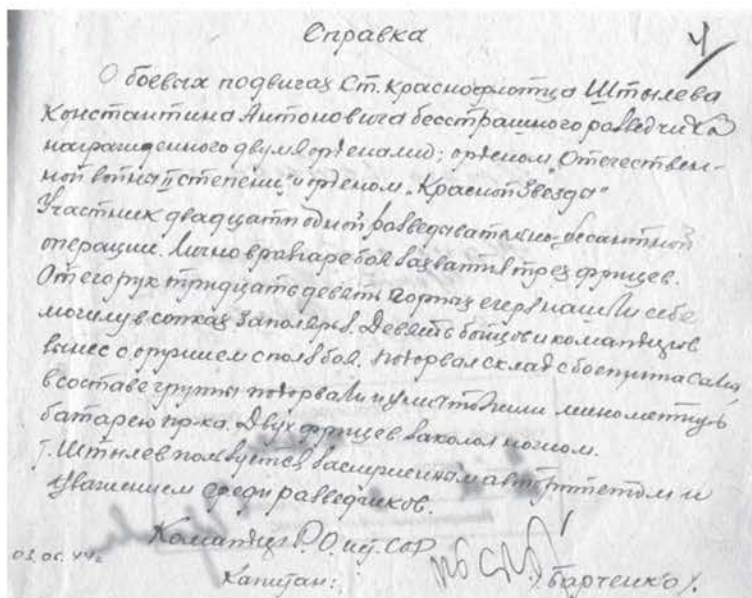 Справка
4
О боевых подвигах Ст. краснофлотца Штылева
Константина Антоновича бесстрашного разведчика
награжденного двумя орденами; орденом „Отечествен-
ной война II степени" и орденом „Красной Звезда"
Участник двадцати одной разведывательно-десантной
операции. Лично в разгаре боя захватил трех фрицев.
От его рук тридцать девять горных егеря нашли себе
могилу в сопках Заполярья. Девять бойцов и командиров
вынес с оружием с поля боя. Подорвал склад с боеприпасами,
в составе группы подорвали и уничтожили минометную
батарею пр-ка. Двух фрицев заколол ножом.
т. Штылев пользуется заслуженным авторитетом и
уважением среди разведчиков.
Командир Р.О. СОР
03.06.44г
Капитан:
/Барченко/.